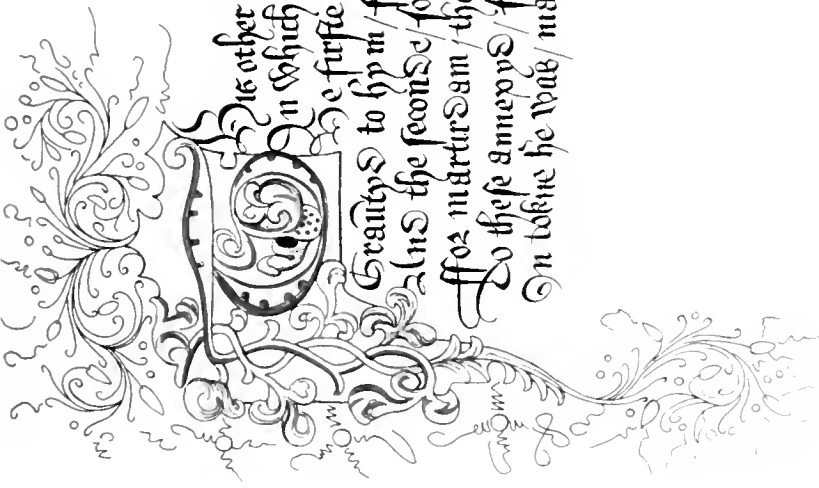 This other
In which
The firste
Grauntyd to hym f
And the seconde fo
ffor martirdam the
To these annexyd f
In tokne he was ma